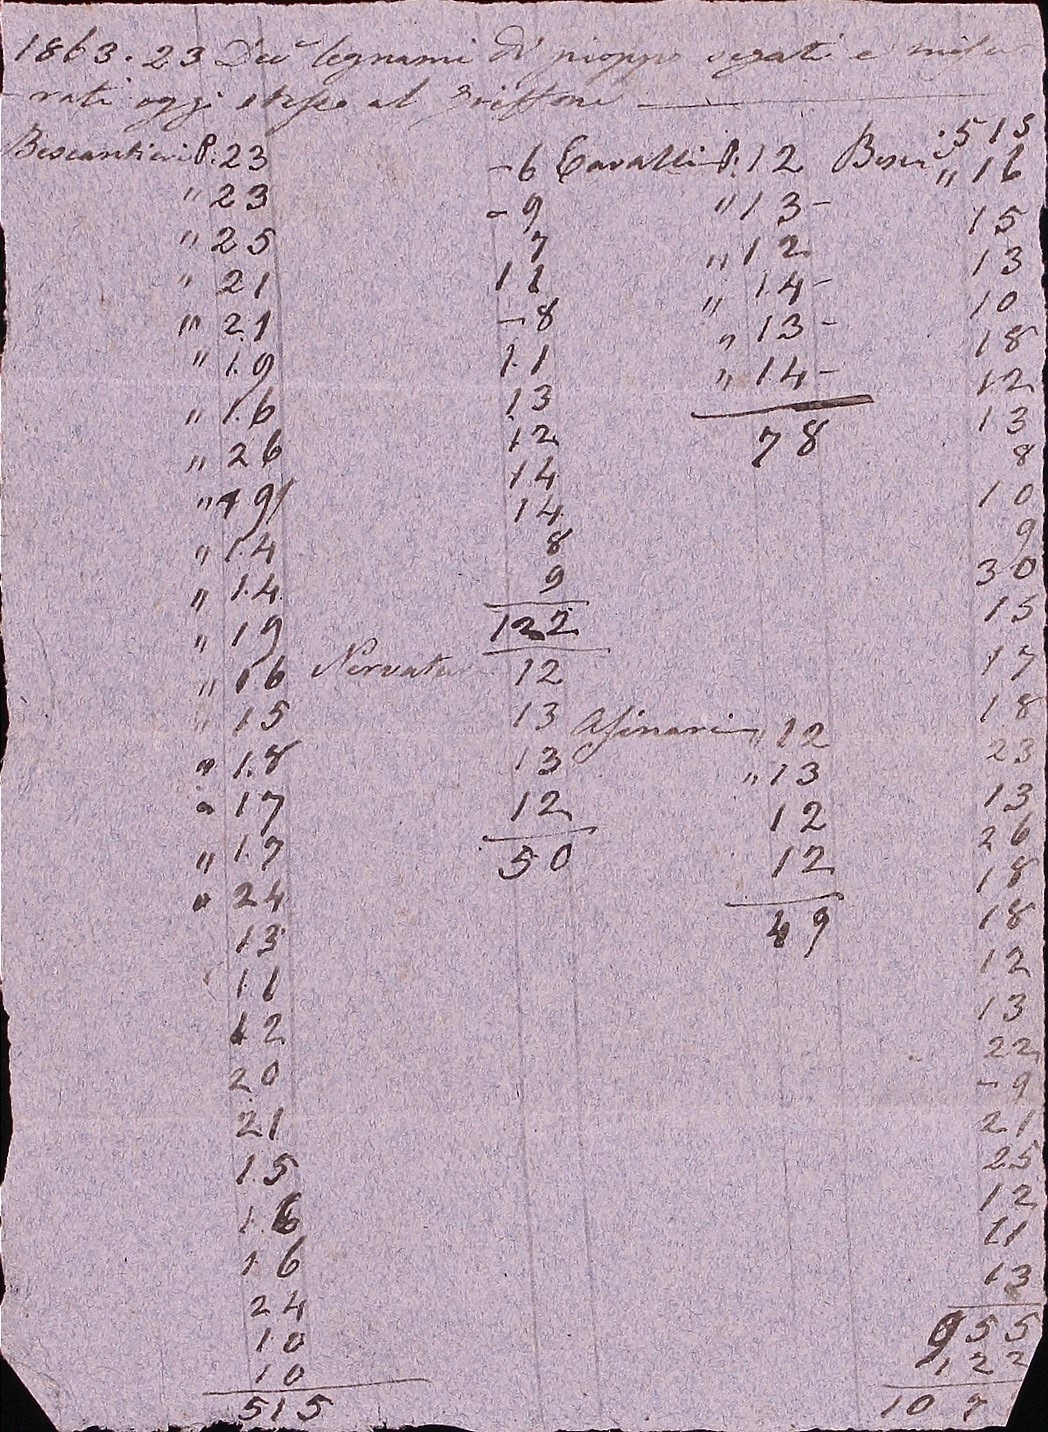 1863. 23 Dec.e legnami di pioppo segati e misu
rati oggi stesso al Griffone
Biscantieri P. 23
" 23
" 25
" 21
" 21
" 19
" 16
" 26
" 19
" 14
" 14
" 19
" 16
" 15
" 18
" 17
" 17
" 24
13
11
12
20
21
15
16
16
24
10
10
515
- 6
- 9
7
11
- 8
11
13
12
14
14
8
9
122
Nervature 12
13
13
12
50
Cavalli P. 12
" 13 -
" 12
" 14 -
" 13 -
" 14 -
78
Asinari " 12
" 13
12
12
49
: 515
" 16
15
13
10
18
12
13
8
10
9
30
15
17
18
23
13
26
18
18
12
13
22
- 9
21
25
12
11
13
955
122
10 7